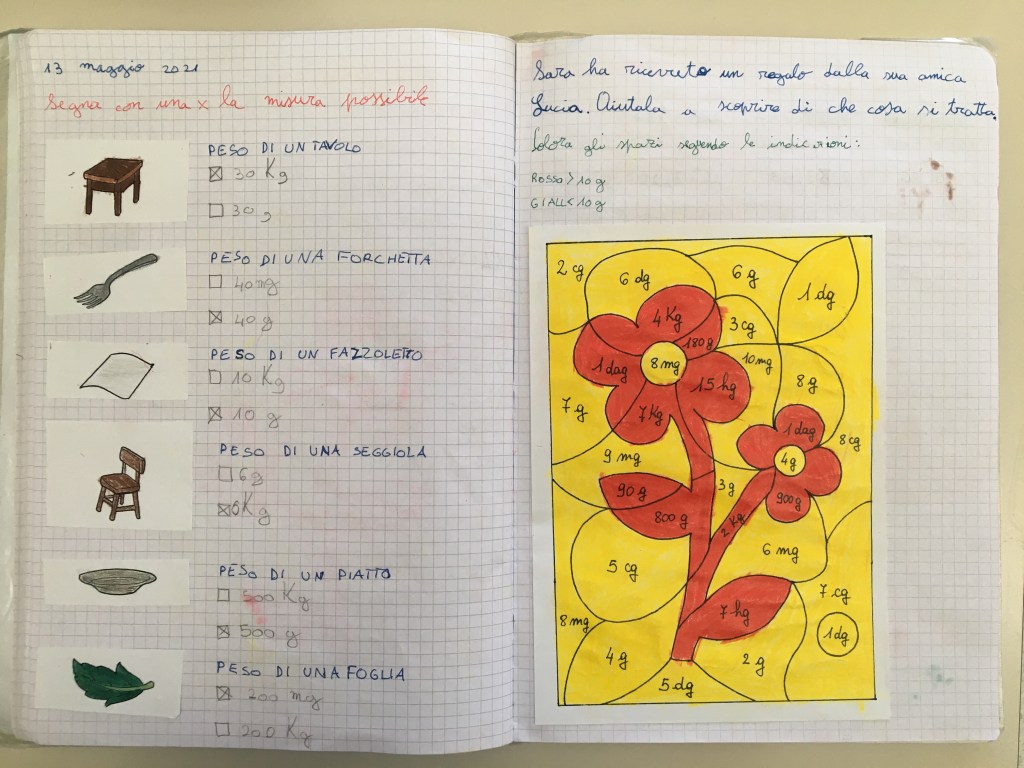 13 maggio 2021
Segna con una x la misura possibile
PESO DI UN TAVOLO
30 Kg
30 g
PESO DI UNA FORCHETTA
40 mg
40 g
PESO DI UN FAZZOLETTO
10 Kg
10 g
PESO DI UNA SEGGIOLA
6 g
6 Kg
PESO DI UN PIATTO
500 Kg
500 g
PESO DI UNA FOGLIA
200 mg
200 Kg
Sara ha ricevuto un regalo dalla sua amica
Lucia. Aiutala a scoprire di che cosa si tratta.
Colora gli spazi seguendo le indicazioni:
ROSSO > 10 g
GIALL< 10 g
2 cg
6 dg
6 g
1 dg
4 Kg
3 cg
180 g
1 dag
8 mg
10 mg
15 hg
8 g
7 g
7 Kg
1 dag
8 cg
9 mg
4 g
90 g
3 g
900 g
800 g
2 Kg
5 cg
6 mg
7 cg
7 hg
8 mg
1 dg
4 g
2 g
5 dg